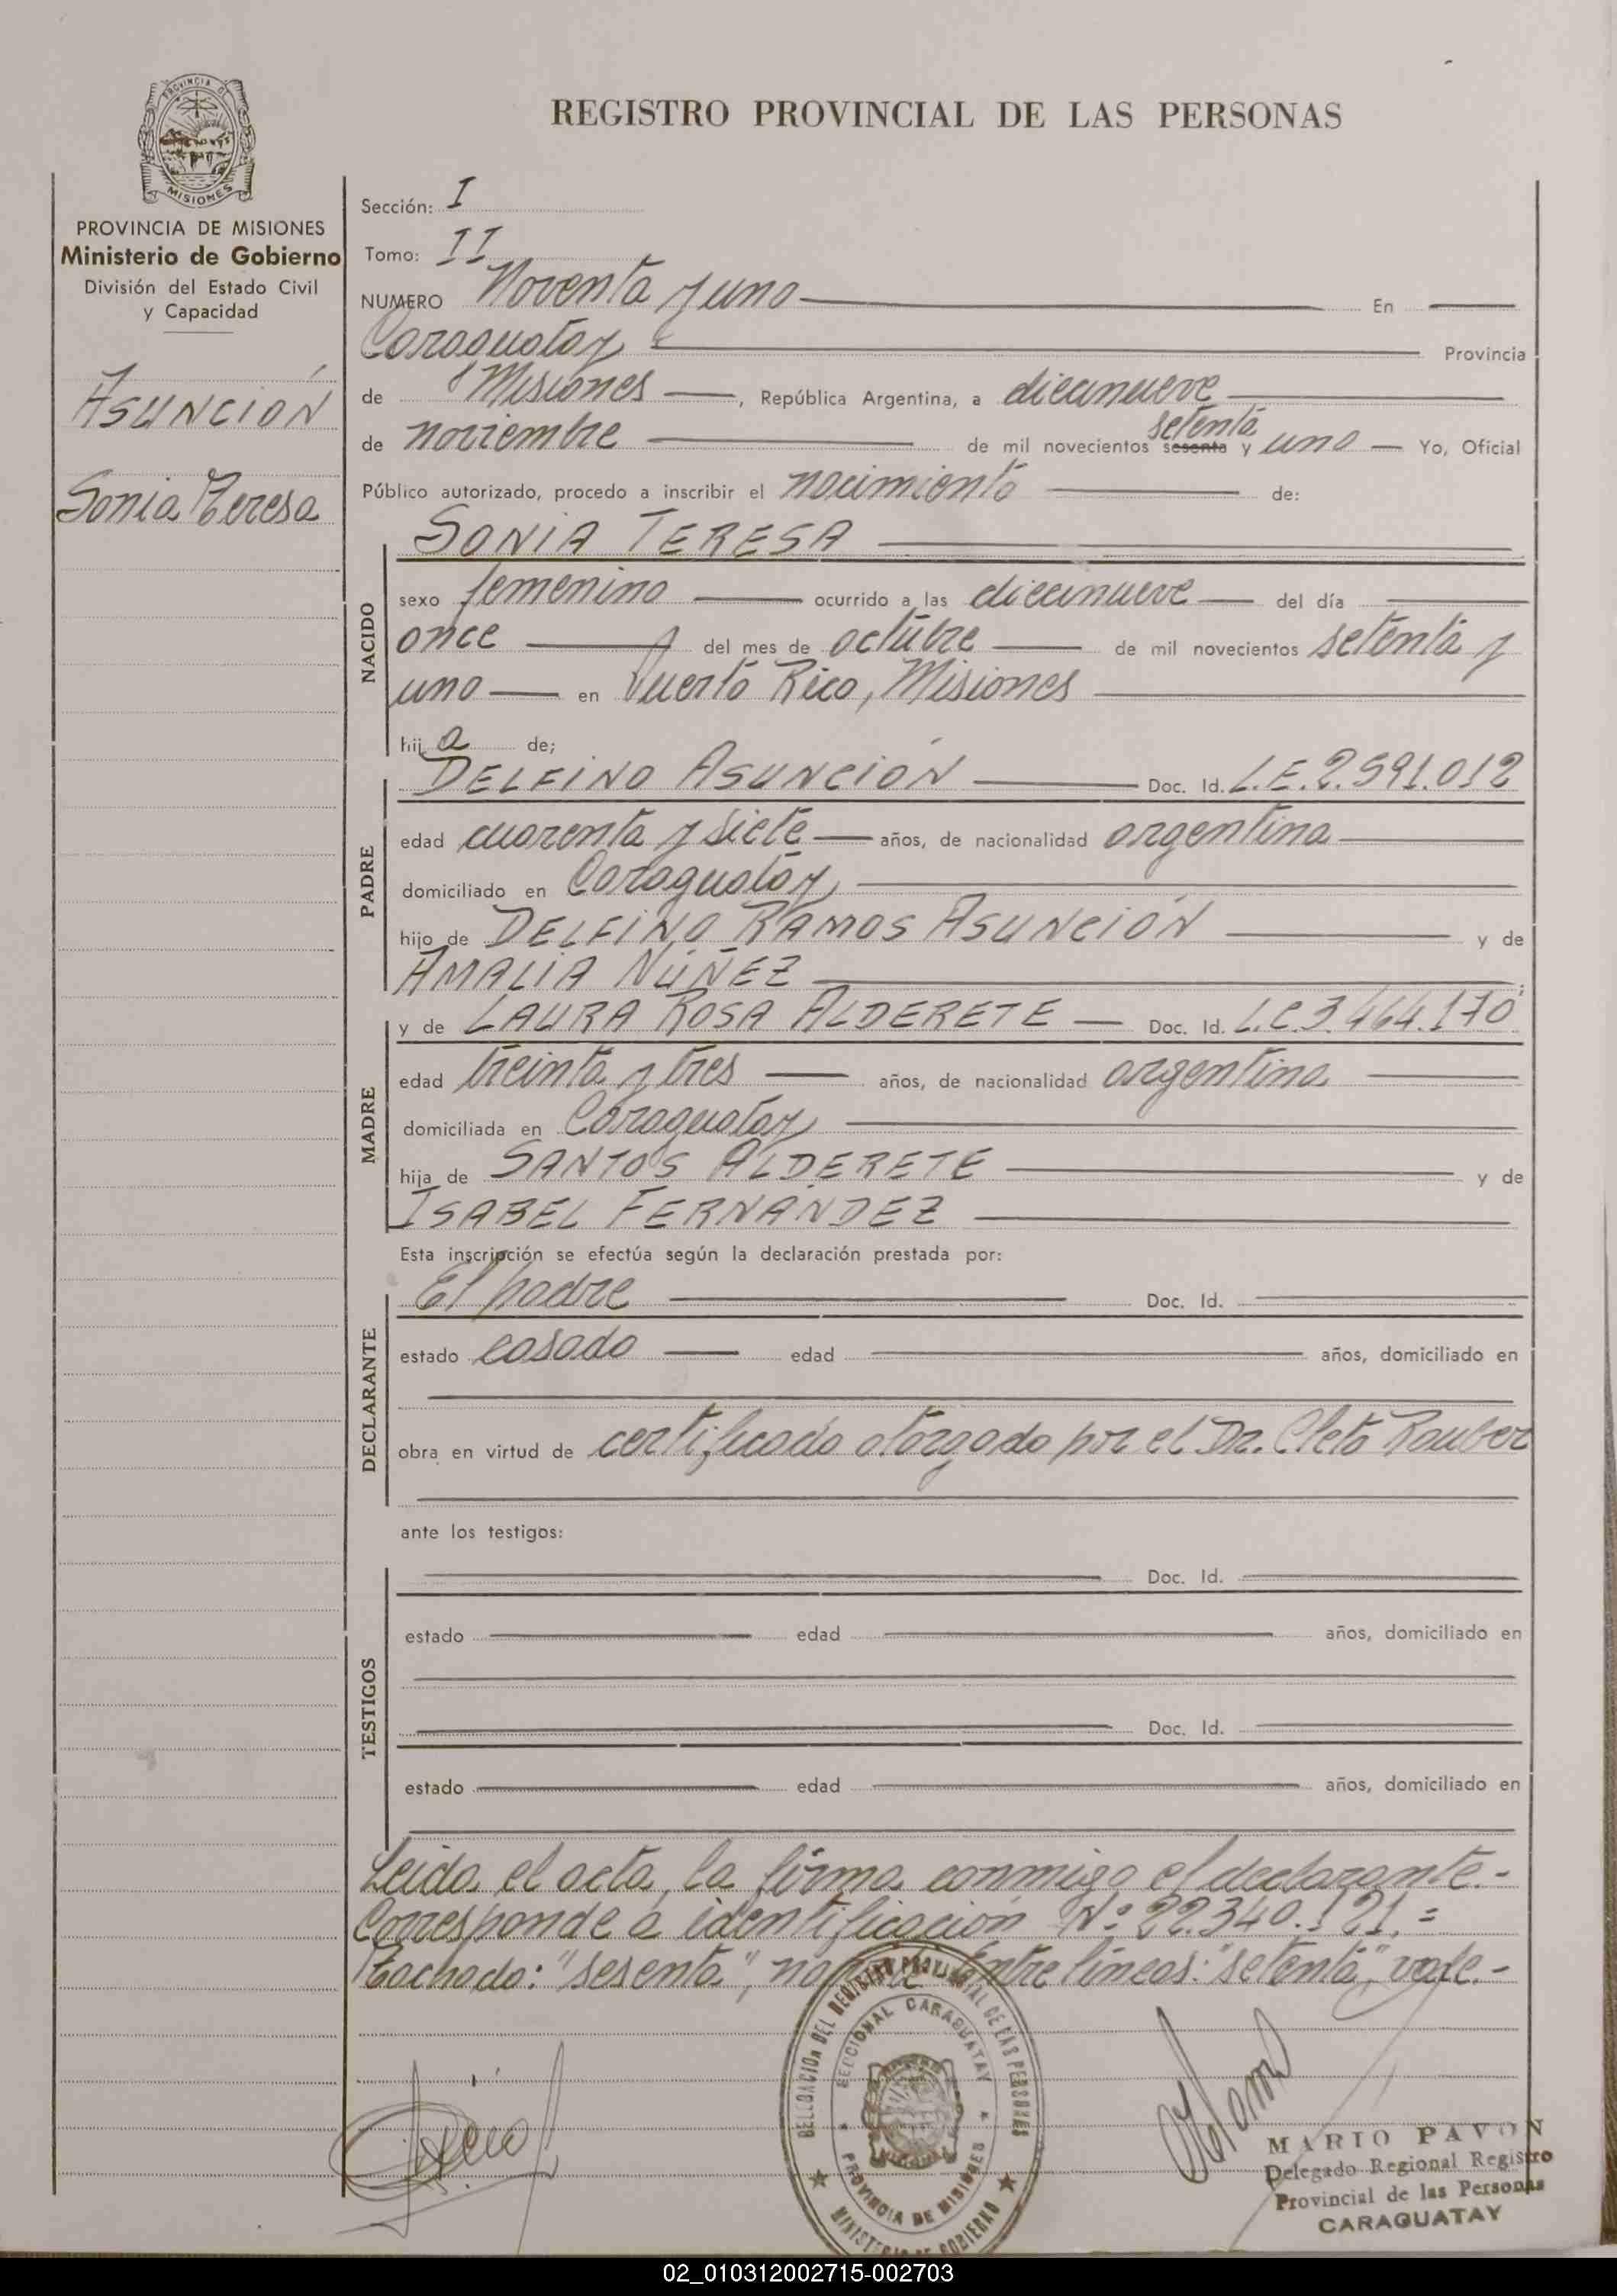 REGISTRO PROVINCIAL DE LAS PERSONAS
PROVINCIA DE
MISIONES
PROVINCIA DE MISIONES
Ministerio de Gobierno
División del Estado Civil
y Capacidad
ASUNCIÓN
Sonia Teresa
Sección: I
Tomo: II
NUMERO Noventa y uno En
Caraguatay Provincia
de Misiones, República Argentina, a diecinueve
setenta
de noviembre de mil novecientos sesenta y uno Yo, Oficial
Público autorizado, procedo a inscribir el nacimiento de:
NACIDO
SONIA TERESA
sexo femenino ocurrido a las diecinueve del día
once del mes de octubre de mil novecientos setenta y
uno en Puerto Rico, Misiones
hija de;
PADRE
DELFINO ASUNCIÓN Doc. Id. L.E. 2.591.012
edad cuarenta y siete años, de nacionalidad argentina
domiciliado en Caraguatay
hijo de DELFINO RAMOS ASUNCIÓN y de
AMALIA NÚÑEZ ;
MADRE
y de LAURA ROSA ALDERETE Doc. Id. L.C. 3.464.170
edad treinta y tres años, de nacionalidad argentina
domiciliada en Caraguatay
hija de SANTOS ALDERETE y de
ISABEL FERNANDEZ
Esta inscripción se efectúa según la declaración prestada por:
DECLARANTE
El padre Doc. Id.
estado casado edad años, domiciliado en
obra en virtud de certificado otorgado por el Dr. Cleto Rauber
ante los testigos:
TESTIGOS
Doc. Id.
estado edad años, domiciliado en
Doc. Id.
estado edad años, domiciliado en
Leida el acta, la firma conmigo el declarante.-
Corresponde a identificación Nº 22.340.121.=
Tachado: "sesenta", no Entre líneas: "setenta", vale.-
DELEGACION DEL REGISTRO PROVINCIAL DE LAS PERSONAS
SECCIONAL CARAGUATAY
PROVINCIA DE MISIONES
MINISTERIO DE GOBIERNO
MARIO PAVON
Delegado Regional Registro
Provincial de las Personas
CARAGUATAY
02_010312002715-002703